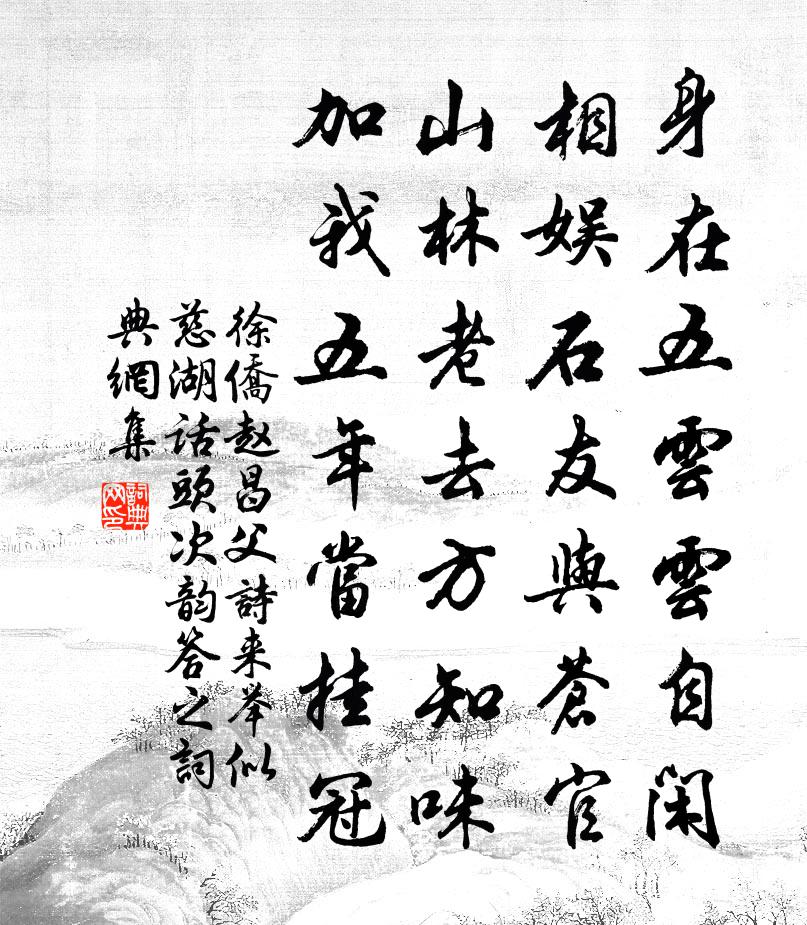 身在五雲雲自閑
相娱石友與蒼官
山林老去方知味
加我五年當挂冠
徐僑赵昌父詩来举似
慈湖话頭次韵答之詞
典網集
詞典网印